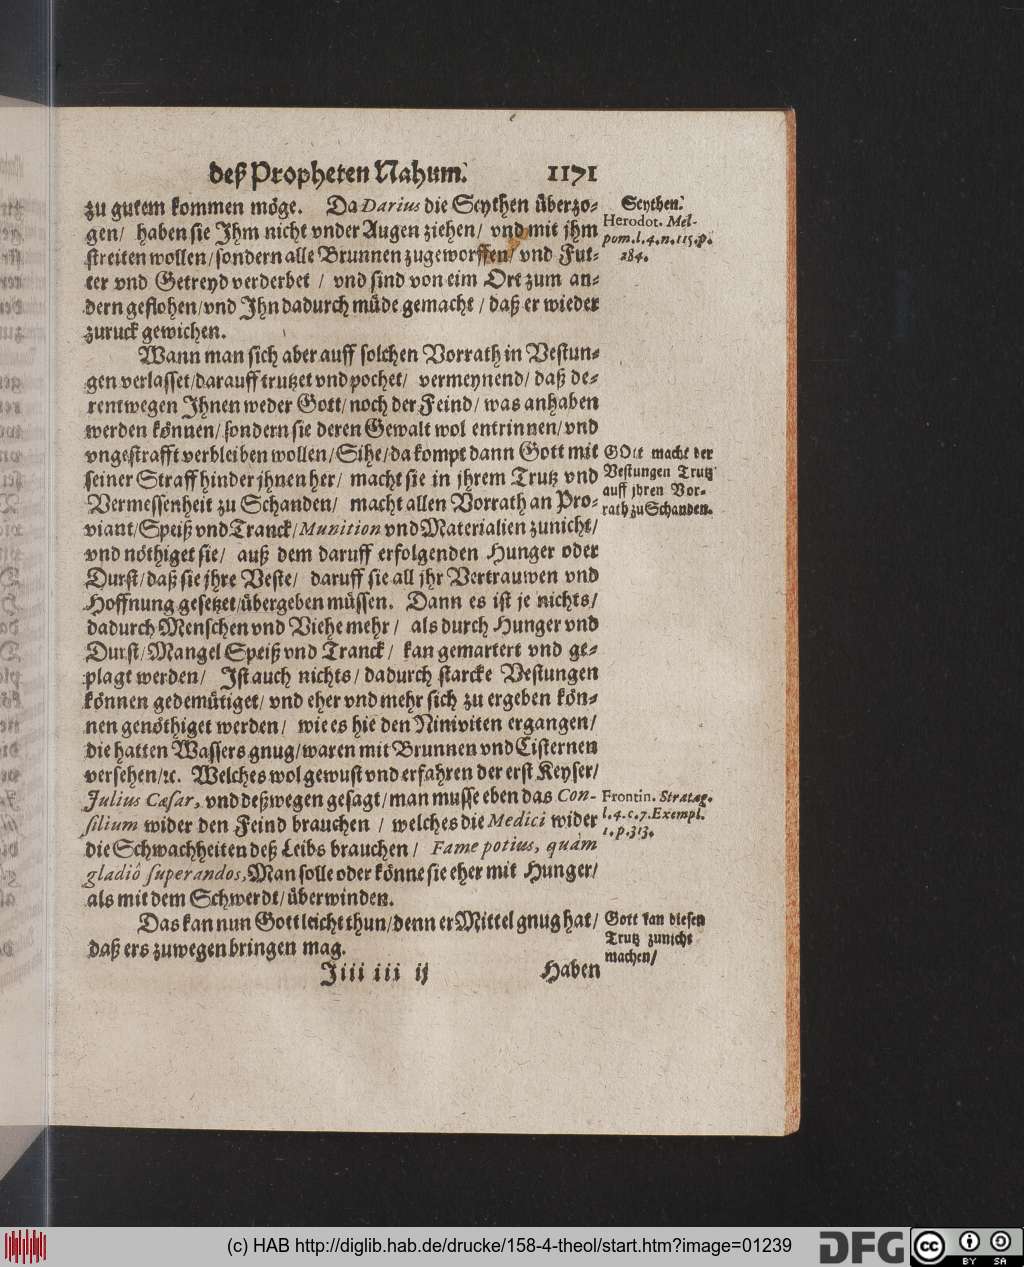 deß Propheten Nahum.
1171
zu gutem kommen möge. Da Darius die Scythen überzo-
gen/ haben sie Ihm nicht vnder Augen ziehen/ vnd mit jhm
streiten wollen/ sondern alle Brunnen zugeworffen/ vnd Fut-
ter vnd Getreyd verderbet / vnd sind von eim Ort zum an-
dern geflohen/ vnd Ihn dadurch müde gemacht / daß er wieder
zuruck gewichen.
Scythen.
Herodot. Mel-
pom. l. 4. n. 115. p.
284.
Wann man sich aber auff solchen Vorrath in Vestun-
gen verlasset/ darauff trutzet vnd pochet/ vermeynend/ daß de-
rentwegen Ihnen weder Gott/ noch der Feind/ was anhaben
werden können/ sondern sie deren Gewalt wol entrinnen/ vnd
vngestrafft verbleiben wollen/ Sihe/ da kompt dann Gott mit
seiner Straff hinder jhnen her/ macht sie in jhrem Trutz vnd
Vermessenheit zu Schanden/ macht allen Vorrath an Pro-
viant/ Speiß vnd Tranck/ Munition vnd Materialien zunicht/
vnd nöthiget sie/ auß dem daruff erfolgenden Hunger oder
Durst/ daß sie jhre Veste/ daruff sie all jhr Vertrauwen vnd
Hoffnung gesetzet/ übergeben müssen. Dann es ist je nichts/
dadurch Menschen vnd Viehe mehr/ als durch Hunger vnd
Durst/ Mangel Speiß vnd Tranck/ kan gemartert vnd ge-
plagt werden/ Ist auch nichts/ dadurch starcke Vestungen
können gedemütiget/ vnd eher vnd mehr sich zu ergeben kön-
nen genöthiget werden/ wie es hie den Niniviten ergangen/
die hatten Wassers gnug/ waren mit Brunnen vnd Cisternen
versehen/ ꝛc. Welches wol gewust vnd erfahren der erst Keyser/
Julius Cæsar, vnd deßwegen gesagt/ man musse eben das Con-
silium wider den Feind brauchen / welches die Medici wider
die Schwachheiten deß Leibs brauchen/ Fame potius, quàm
gladiô superandos, Man solle oder könne sie eher mit Hunger/
als mit dem Schwerdt/ überwinden.
GOtt macht der
Vestungen Trutz
auff jhren Vor-
rath zu Schanden.
Frontin. Strateg.
l. 4. c. 7. Exempl.
1. p. 313.
Das kan nun Gott leicht thun/ denn er Mittel gnug hat/
daß ers zuwegen bringen mag.
Gott kan diesen
Trutz zunicht
machen/
Jiii iii ij
Haben
(c) HAB http://diglib.hab.de/drucke/158-4-theol/start.htm?image=01239
DFG
cc
BY SA